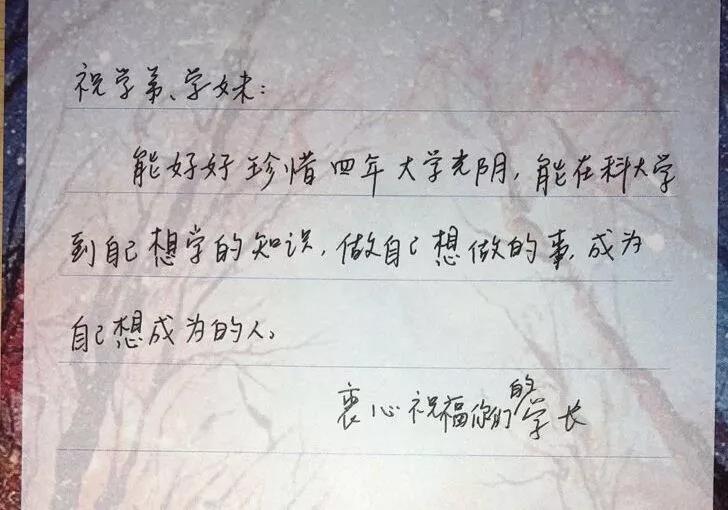 祝学弟、学妹：
能好好珍惜四年大学光阴，能在科大学
到自己想学的知识，做自己想做的事，成为
自己想成为的人。
衷心祝福你们的学长